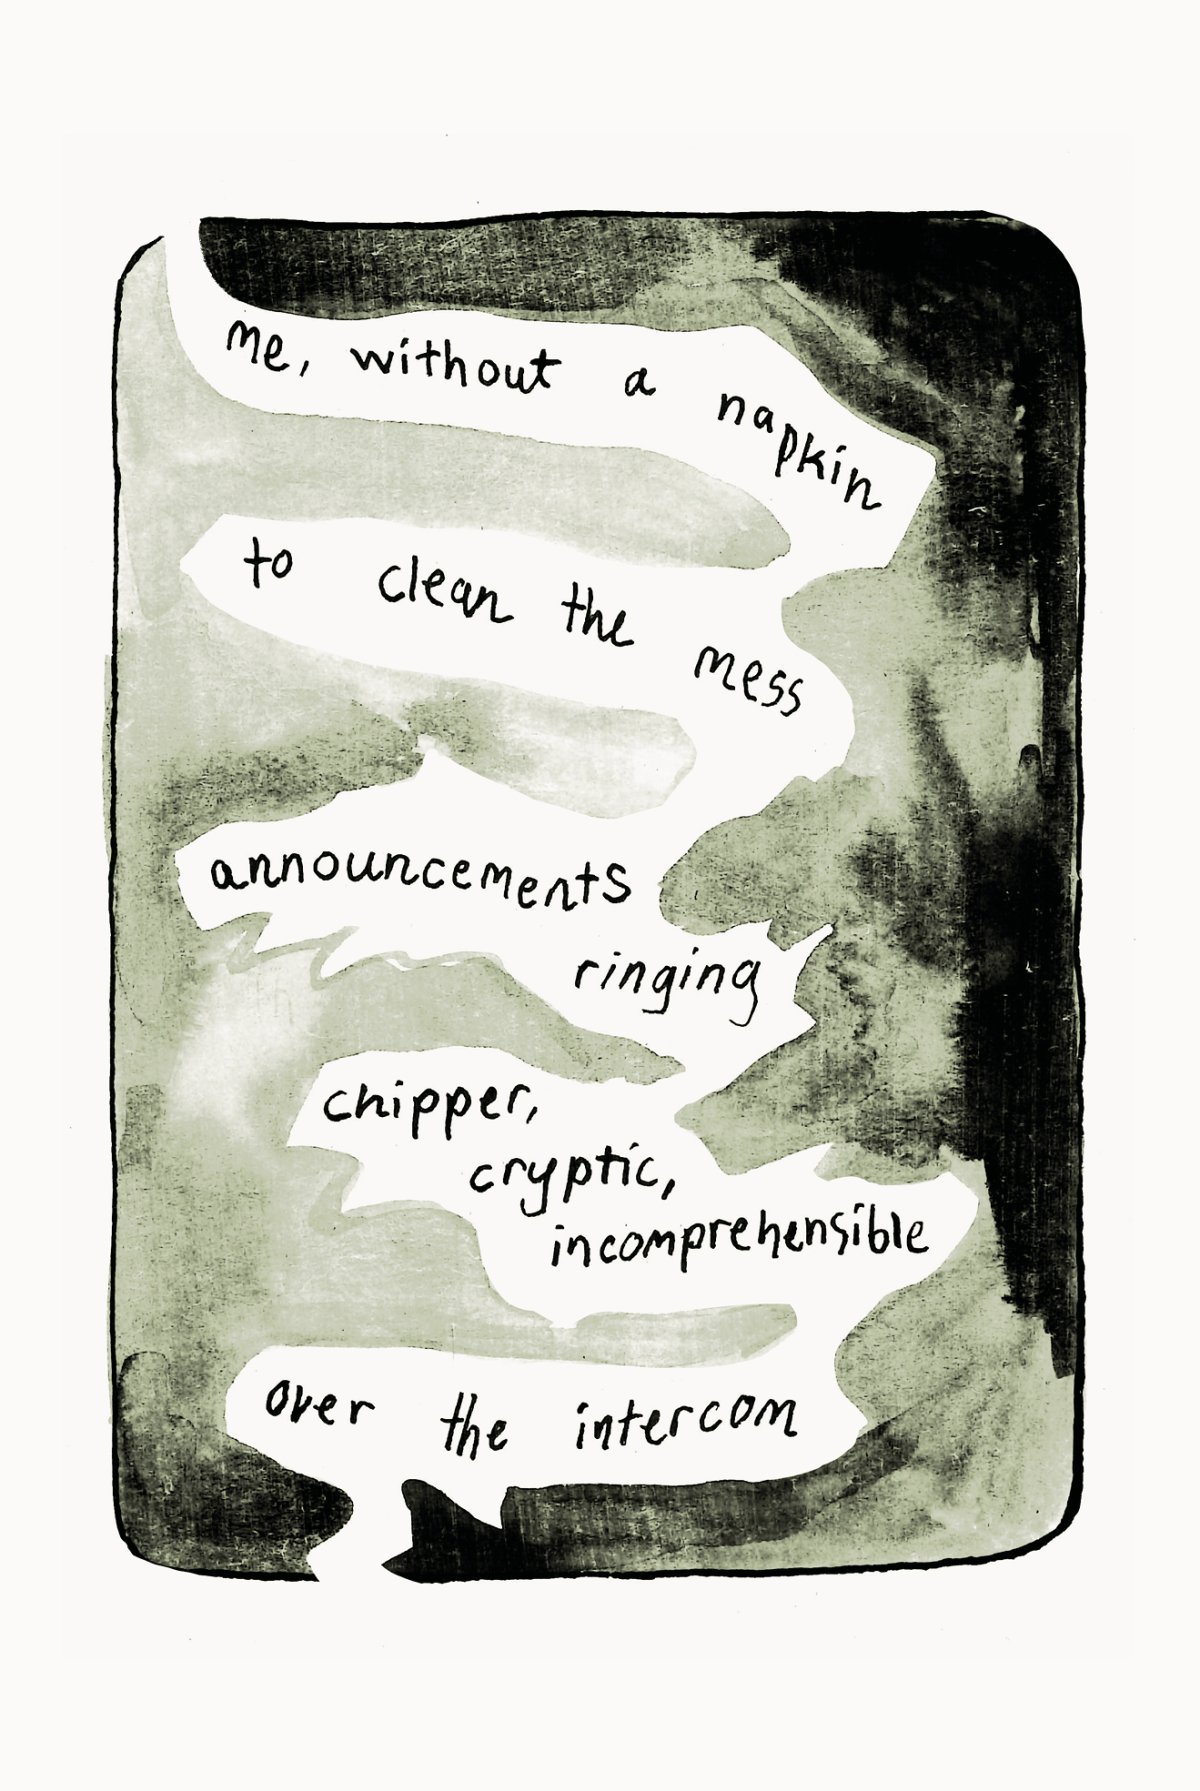 me, without a napkin
to clean the mess
announcements
ringing
chipper,
cryptic,
incomprehensible
over the intercom